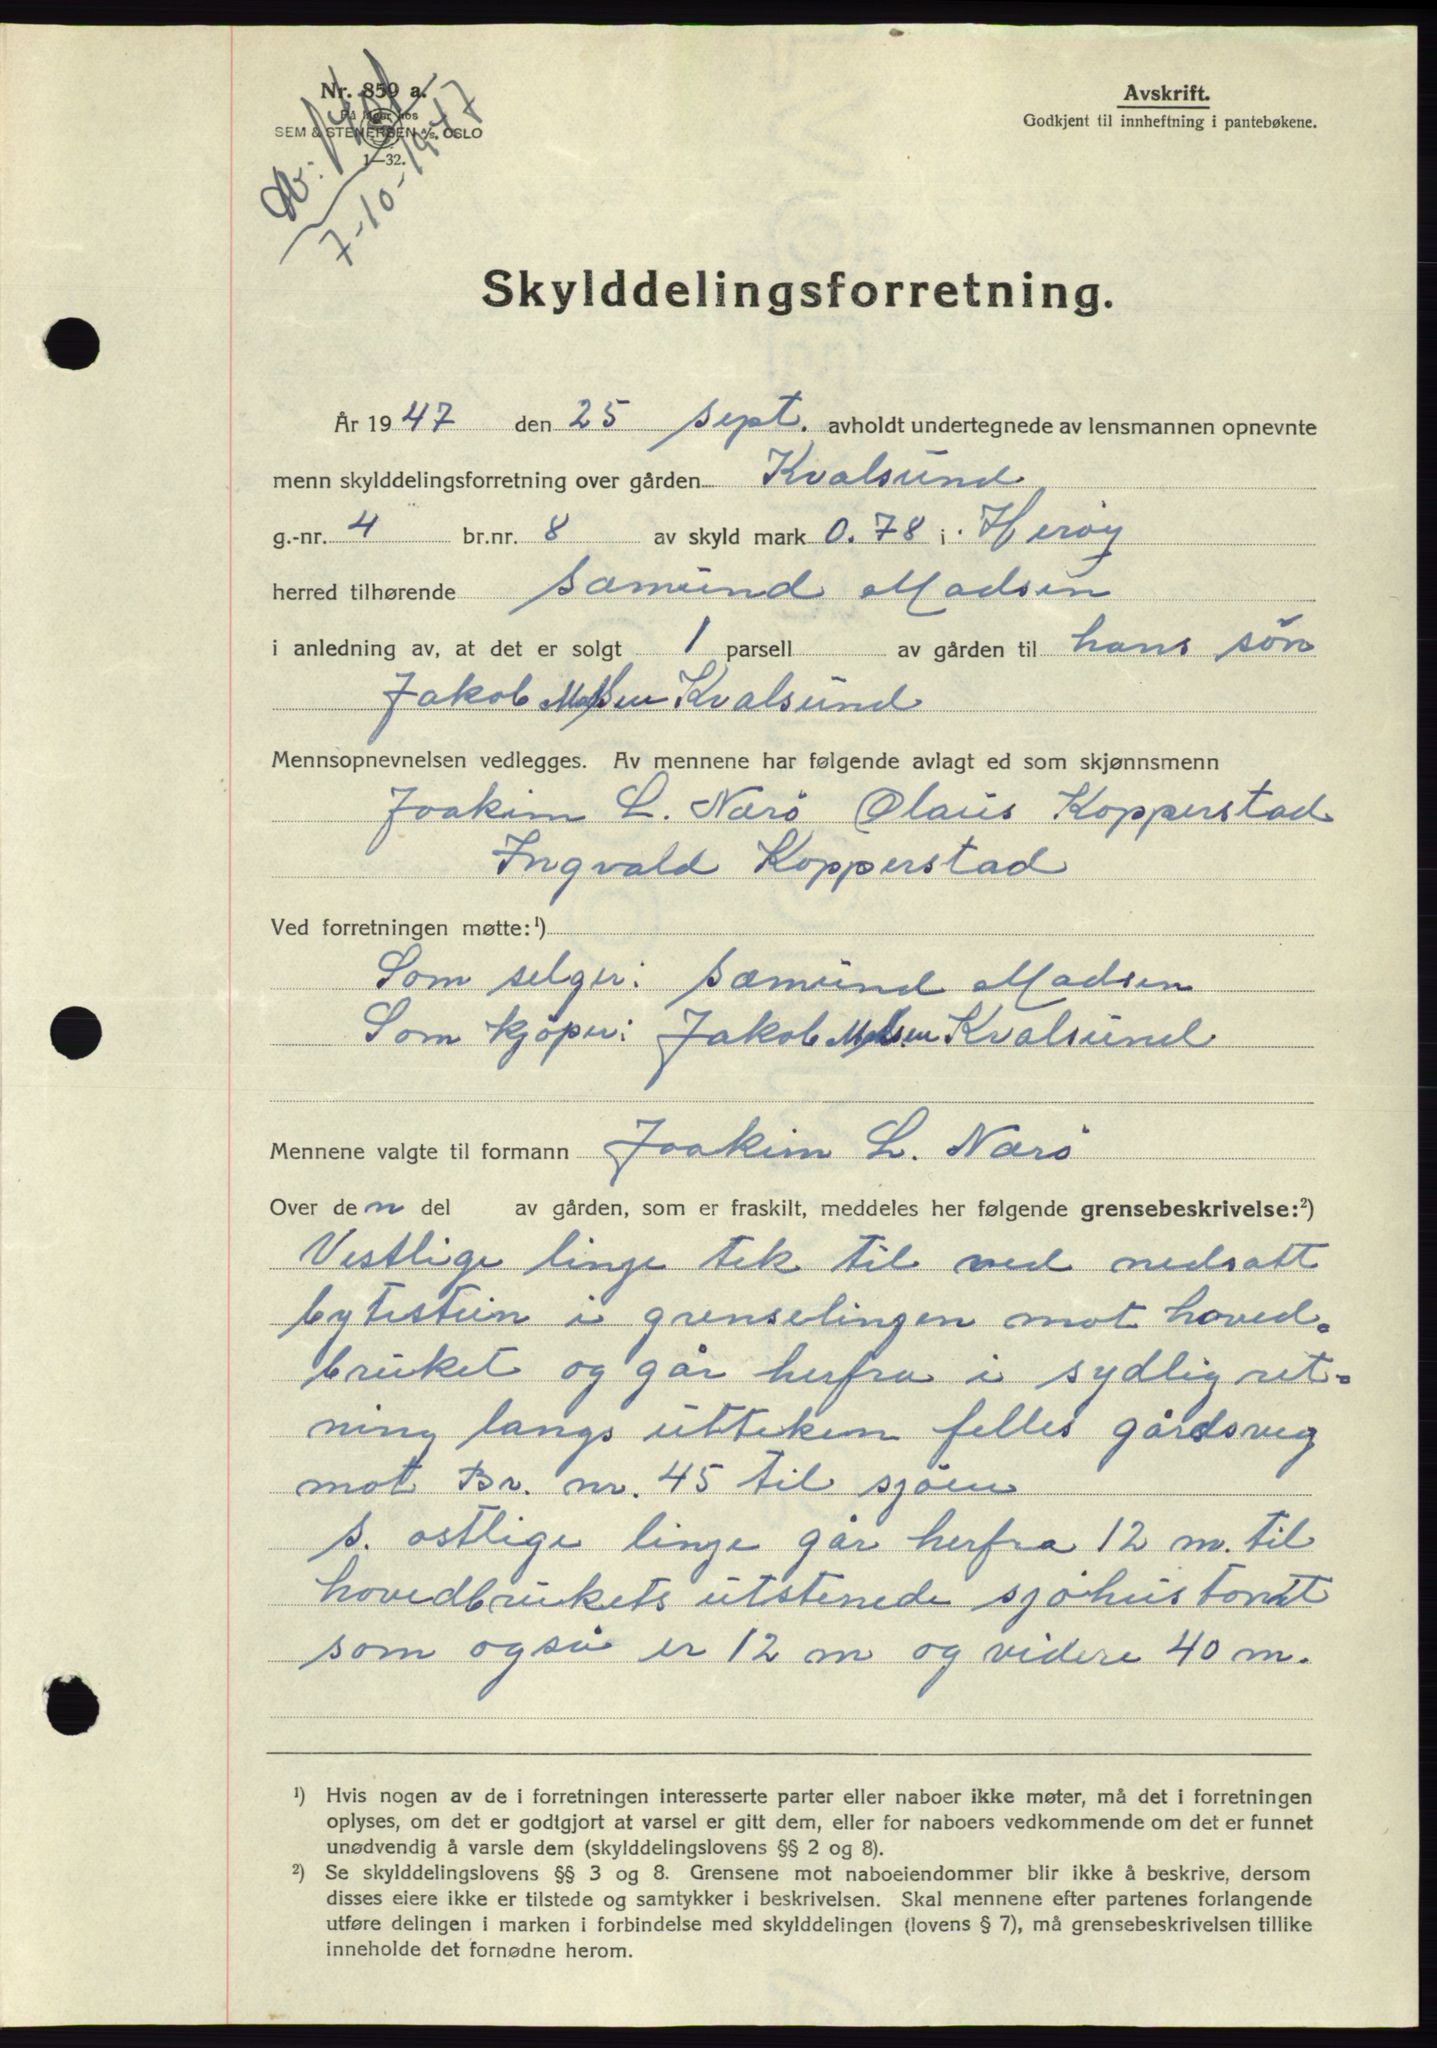 Nr. 859 a.
På lager hos
SEM & STENERSEN A/S. OSLO
1—32.
7-10-1947
Avskrift.
Godkjent til innheftning i pantebøkene.
Skylddelingsforretning.
År 1947 den 25 sept. avholdt undertegnede av lensmannen opnevnte
menn skylddelingsforretning over gården Kvalsund
g.-nr. 4 br.nr. 8 av skyld mark 0.78 i Herøy
herred tilhørende Sæmund Madsen
i anledning av, at det er solgt 1 parsell av gården til hans søn
Jakob Madsen Kvalsund
Mennsopnevnelsen vedlegges. Av mennene har følgende avlagt ed som skjønnsmenn
Joakim L. Nærö Olaus Kopperstad
Ingvald Kopperstad
Ved forretningen møtte:¹)
Som selger: Sæmund Madsen
Som kjöper: Jakob Madsen Kvalsund
Mennene valgte til formann Joakim L. Nærö
Over den del av gården, som er fraskilt, meddeles her følgende grensebeskrivelse:²)
Vestlige linje tek til ved nedsatt
bytestein i grenselinjen mot hoved-
bruket og går herfra i sydlig ret-
ning langs utteken felles gårdsveg
mot Br. nr. 45 til sjöen
S. ostlige linje går herfra 12 m. til
hovedbrukets utstenede sjöhustomt
som også er 12 m og videre 40 m.
¹) Hvis nogen av de i forretningen interesserte parter eller naboer ikke møter, må det i forretningen
oplyses, om det er godtgjort at varsel er gitt dem, eller for naboers vedkommende om det er funnet
unødvendig å varsle dem (skylddelingslovens §§ 2 og 8).
²) Se skylddelingslovens §§ 3 og 8. Grensene mot naboeiendommer blir ikke å beskrive, dersom
disses eiere ikke er tilstede og samtykker i beskrivelsen. Skal mennene efter partenes forlangende
utføre delingen i marken i forbindelse med skylddelingen (lovens § 7), må grensebeskrivelsen tillike
inneholde det fornødne herom.